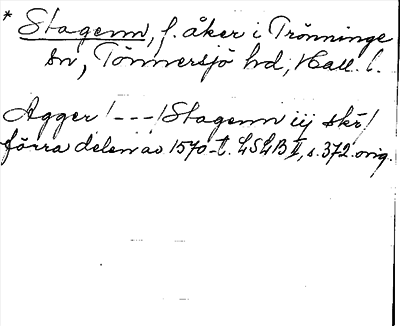 * Stagenn, f. åker i Trönninge
sn, Tönnersjö hd, Hall. l.
Agger /---/ Stagenn iij skr/
förra delen av 1570-t. LSLB II, s. 372 orig.